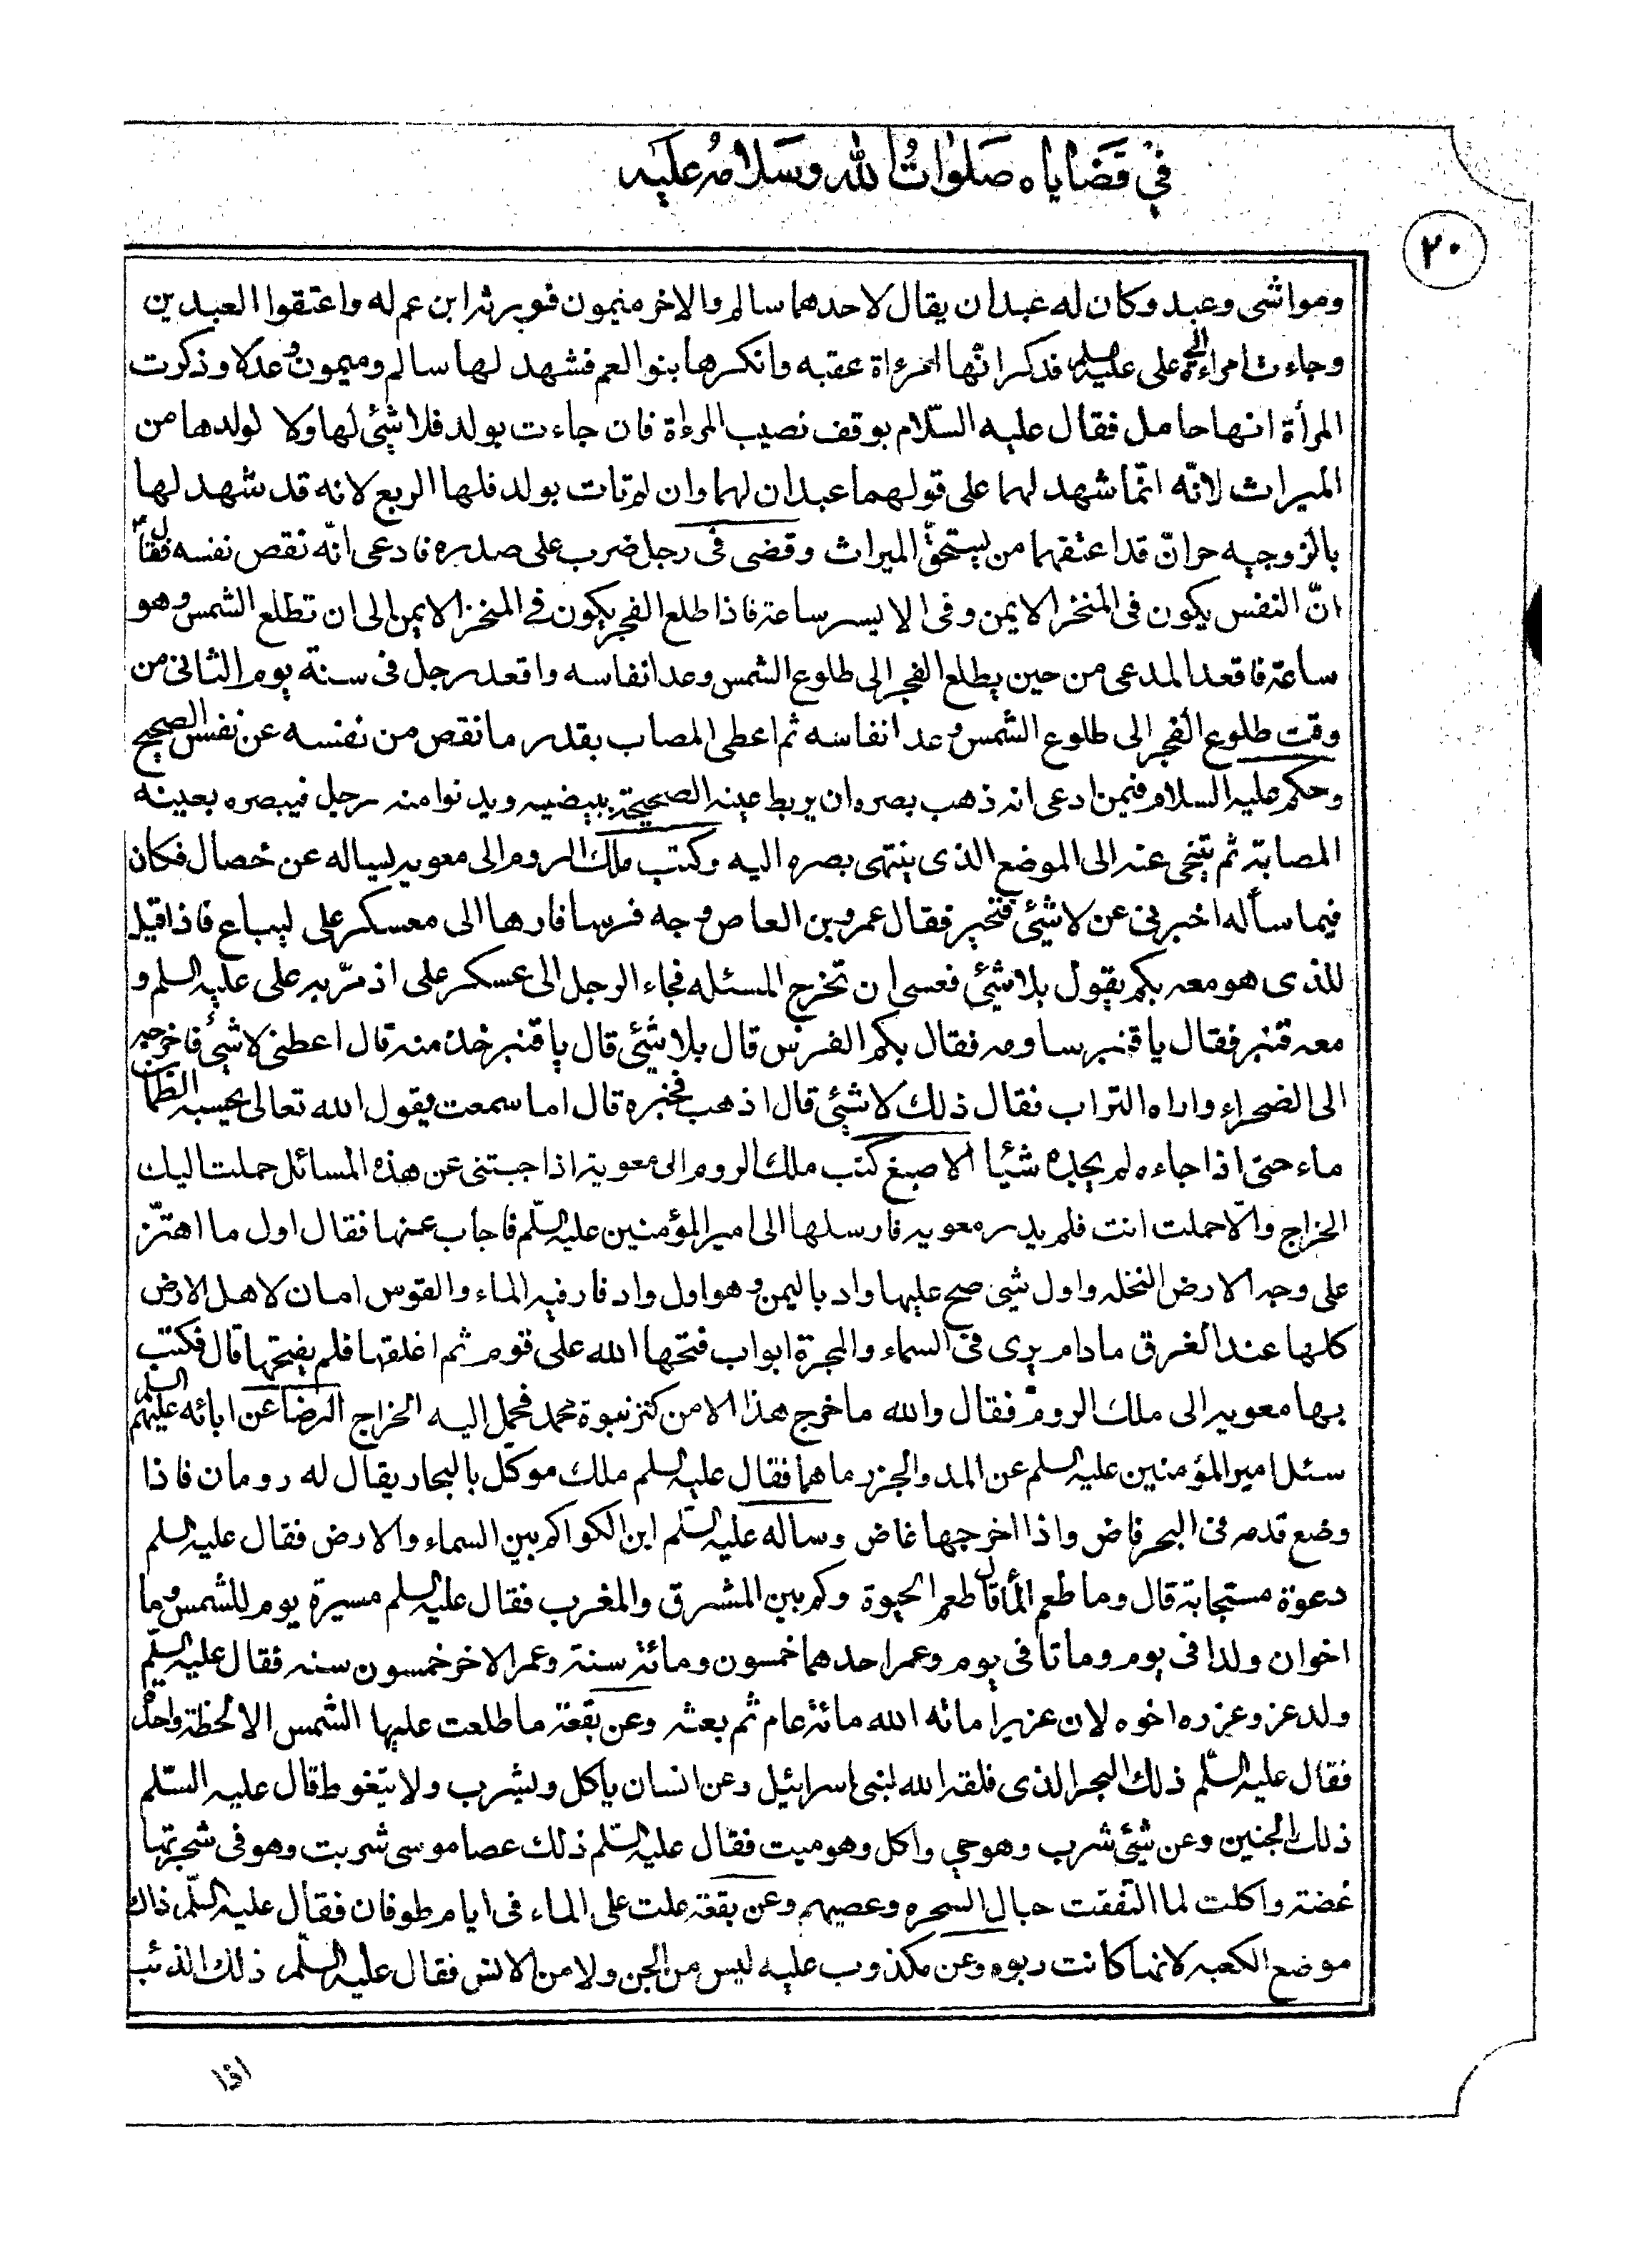 في قضاياه صلوات الله وسلامه عليه
٢٠
ومواشي وعبد وكان له عبدان يقال لاحدهما سالم والاخر ميمون فورثه ابن عم له واعتقوا العبدين
وجاءت امراءة الى على عليه السلم فذكر انّها امرءاة عقبه وانكرها بنو العم فشهد لها سالم وميمون وعدلا وذكرت
المرأة انها حامل فقال عليه السّلام يوقف نصيب المرءاة فان جاءت بولد فلا شئ لها ولا لولدها من
الميراث لانّه انّما شهد لهما على قولهما عبدان لهما وان لم تات بولد فلها الربع لانه قد شهد لها
بالزوجيه حرانّ قد اعتقهما من يستحقّ الميراث وقضى فى رجل ضرب على صدره فادعى انّه نقص نفسه فقال ع
انّ النفس يكون فى المنخر الايمن وفى الايسر ساعة فاذا طلع الفجر يكون في المنخر الايمن الى ان تطلع الشمس وهو
ساعة فاقعد المدعى من حين يطلع الفجر الى طلوع الشمس وعد انفاسه واقعد رجل فى سنة يوم الثانى من
وقت طلوع الفجر الى طلوع الشمس وعد انفاسه ثم اعطى المصاب بقدر ما نقص من نفسه عن نفس الصحيح
وحكم عليه السلام فيمن ادعى انه ذهب بصره ان يربط عينه الصحيحة ببيضيه ويدنوا منه رجل فيبصره بعينه
المصابة ثم يتنحى عنه الى الموضع الذى ينتهى بصره اليه وكتب ملك الروم الى معويه يساله عن خصال فكان
فيما سأله اخبرنى عن لاشئ فتحير فقال عمرو بن العاص وجه فرسا فارها الى معسكر على ليباع فاذا قيل
للذى هو معه بكم يقول بلاشئ فعسى ان تخرج المسئله فجاء الرجل الى عسكر على اذ مرّ به على عليه السلم و
معه قنبر فقال يا قنبر ساومه فقال بكم الفرس قال بلاشئ قال يا قنبر خذ منه قال اعطنى لاشئ فاخرجه
الى الصحراء واراه التراب فقال ذلك لاشئ قال اذهب فخبره قال اما سمعت يقول الله تعالى يحسبه الظمآن
ماء حتى اذا جاءه لم يجده شيئا الاصبغ كتب ملك الروم الى معوية اذا جبتنى عن هذه المسائل حملت اليك
الخراج والّا حملت انت فلم يدر معويه فارسلها الى امير المؤمنين عليه السلّم فاجاب عنها فقال اول ما اهتزّ
على وجه الارض النخله واول شئ صح عليها واد باليمن وهو اول واد فار فيه الماء والقوس امان لاهل الارض
كلها عند الغرق مادام يرى فى السماء والمجرة ابواب فتحها الله على قوم ثم اغلقها فلم يفتحها قال فكتب
بها معويه الى ملك الروم فقال والله ما خرج هذا الا من كنز نبوة محمد فحمل اليه الخراج الرضا عن ابائه عليهم السلم
سئل امير المؤمنين عليه السلم عن المد والجزر ما هما فقال عليه السلم ملك موكّل بالبحار يقال له رومان فاذا
وضع قدمه فى البحر فاض واذا اخرجها غاض وساله عليه السلّم ابن الكوا كم بين السماء والارض فقال عليه السلم
دعوة مستجابة قال وما طعم الماء قال طعم الحيوة وكم بين المشرق والمغرب فقال عليه السلم مسيرة يوم للشمس وما
اخوان ولدا فى يوم وماتا فى يوم وعمر احدهما خمسون ومائة سنة وعمر الاخر خمسون سنه فقال عليه السلّم
ولد عزير وعزره اخوه لان عزيرا ماته الله مائة عام ثم بعثه وعن بقعة ما طلعت عليها الشمس الا لحظة واحدة
فقال عليه السلّم ذلك البحر الذى فلقه الله لبنى اسرائيل وعن انسان ياكل ويشرب ولا يتغوط قال عليه السّلم
ذلك الجنين وعن شئ شرب وهو حى واكل وهو ميت فقال عليه السّلم ذلك عصا موسى شربت وهو فى شجرتها
غضة واكلت لما التقفت حبال السحره وعصيهم وعن بقعة علت على الماء فى ايام طوفان فقال عليه السلّم ذاك
موضع الكعبه لانها كانت ربوه وعن مكذوب عليه ليس من الجن ولا من الانس فقال عليه السلّم ذلك الذئب